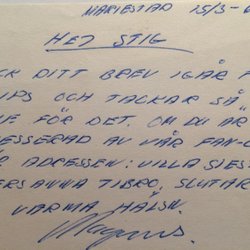 MARIESTAD 15/3-6
HEJ STIG
CK DITT BREV IGÅR F
IPS OCH TACKAR SÅ
E FÖR DET. OM DU ÄR
ESSERAD AV VÅR FAN-C
ADRESSEN: VILLA SIES
ERS ANNA TIBRO. SLUTTAG
VARMA HÄLSN.
Magnus